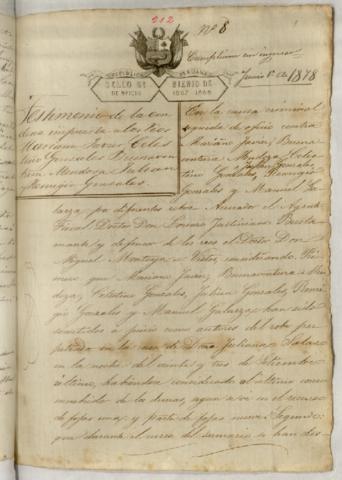 212
Nº 8
Cumplieron en ingreso
Junio 1º de 1878
REPUBLICA PERUANA
SELLO 6º
DE OFICIO
BIENIO DE
1867 1868
Testimonio de la con
dena impuesta a los reos
Mariano Javier Celes
tino Gonzales Buenaven
tura Mendoza Julian
y Remigio Gonzales.
En la causa criminal
seguida de oficio contra
Mariano Javier, Buena
ventura Mendoza, Celes
tino Gonzales, Julian Gonzales, Remigio
Gonzales y Manuel Ga
larza por
Fiscal Doctor Don Lorenzo Justiniano Busta
mante y defensor de los reos el Doctor Don
Miguel Montoya = Vistos; considerando: Pri
mero que Mariano Javier, Buenaventura Men
doza, Celestino Gonzales, Julian Gonzales, Remi
gio Gonzales y Manuel Galarza han sido
sometidos a juicio como autores del robo per
petrado en la casa de Doña Juliana Salazar
en la noche del veinte y tres de Setiembre
último, habiendose considerado al ultimo como
de fojas una y parte de fojas nueve. Segundo:
que durante el curso del sumario se han des-